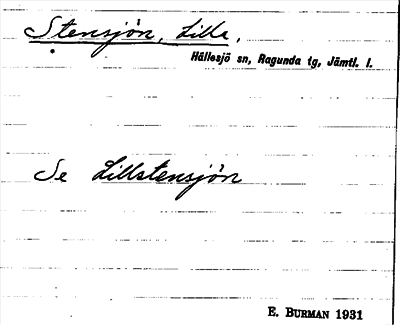 Stensjön, Lilla,
Hällesjö sn, Ragunda tg, Jämtl. l.
Se Lillstensjön
E. BURMAN 1931